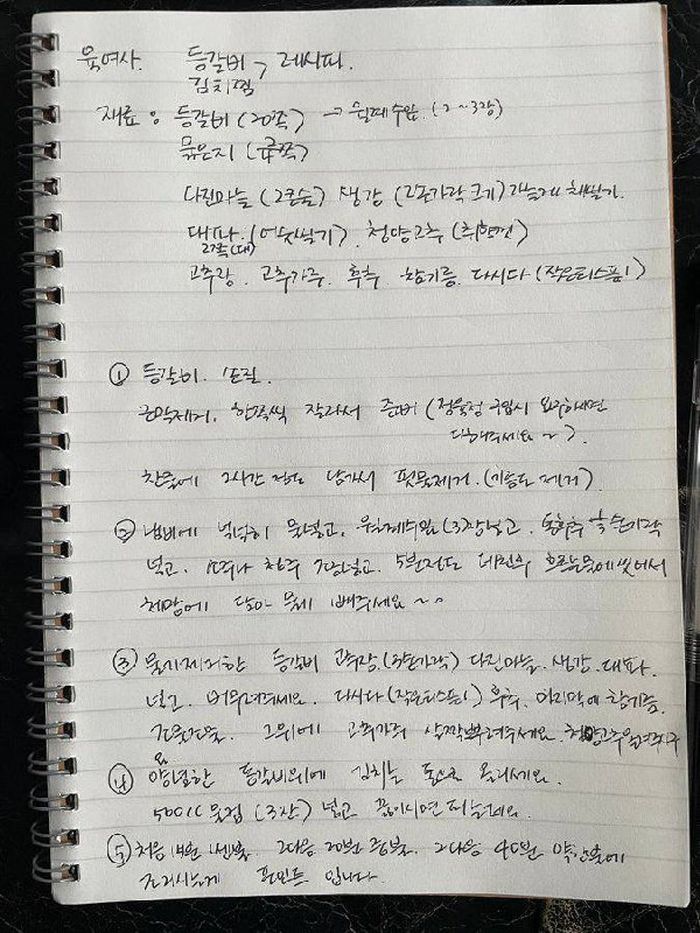 육여사. 등갈비 > 레시피.
김치찜
재료 : 등갈비 (20쪽) → 월계수잎. (2~3장)
묵은지 (쪽)
다진마늘 (2큰술) 생강 (2손가락 크기) 가늘게 채썰기.
대파. (어슷썰기). 청양고추 (취향껏)
2쪽(대)
고추장. 고추가루. 후추. 참기름. 다시다 (작은티스푼1)
① 등갈비. 손질.
근막제거. 한쪽씩 잘라서 준비 (정육점 구입시 요구하시면
다해주세요 ~).
찬물에 2시간 정도 담가서 핏물제거. (기름도 제거).
② 냄비에 넉넉히 물넣고. 월계수잎 (3)장넣고. 통후추 한 손가락
넣고. 청주 넣고. 5분정도 데친후 흐르는물에 씻어서
체망에 담아 물기 빼주세요 ~
③ 물기제거한 등갈비 고추장.(3숟가락) 다진마늘. 생강. 대파.
넣고. 버무려주세요. 다시다 (작은티스푼1) 후추. 마지막에 참기름.
그위에 고추가루 살짝뿌려주세요. 청양고추
④ 양념한 등갈비위에 김치를 통으로 올리세요.
500cc 물컵 (3잔) 넣고 끓이시면 되는데요.
⑤ 처음 센불. 그다음 20분 중불. 그다음 40분 약한불에
조리시는게 포인트 입니다.